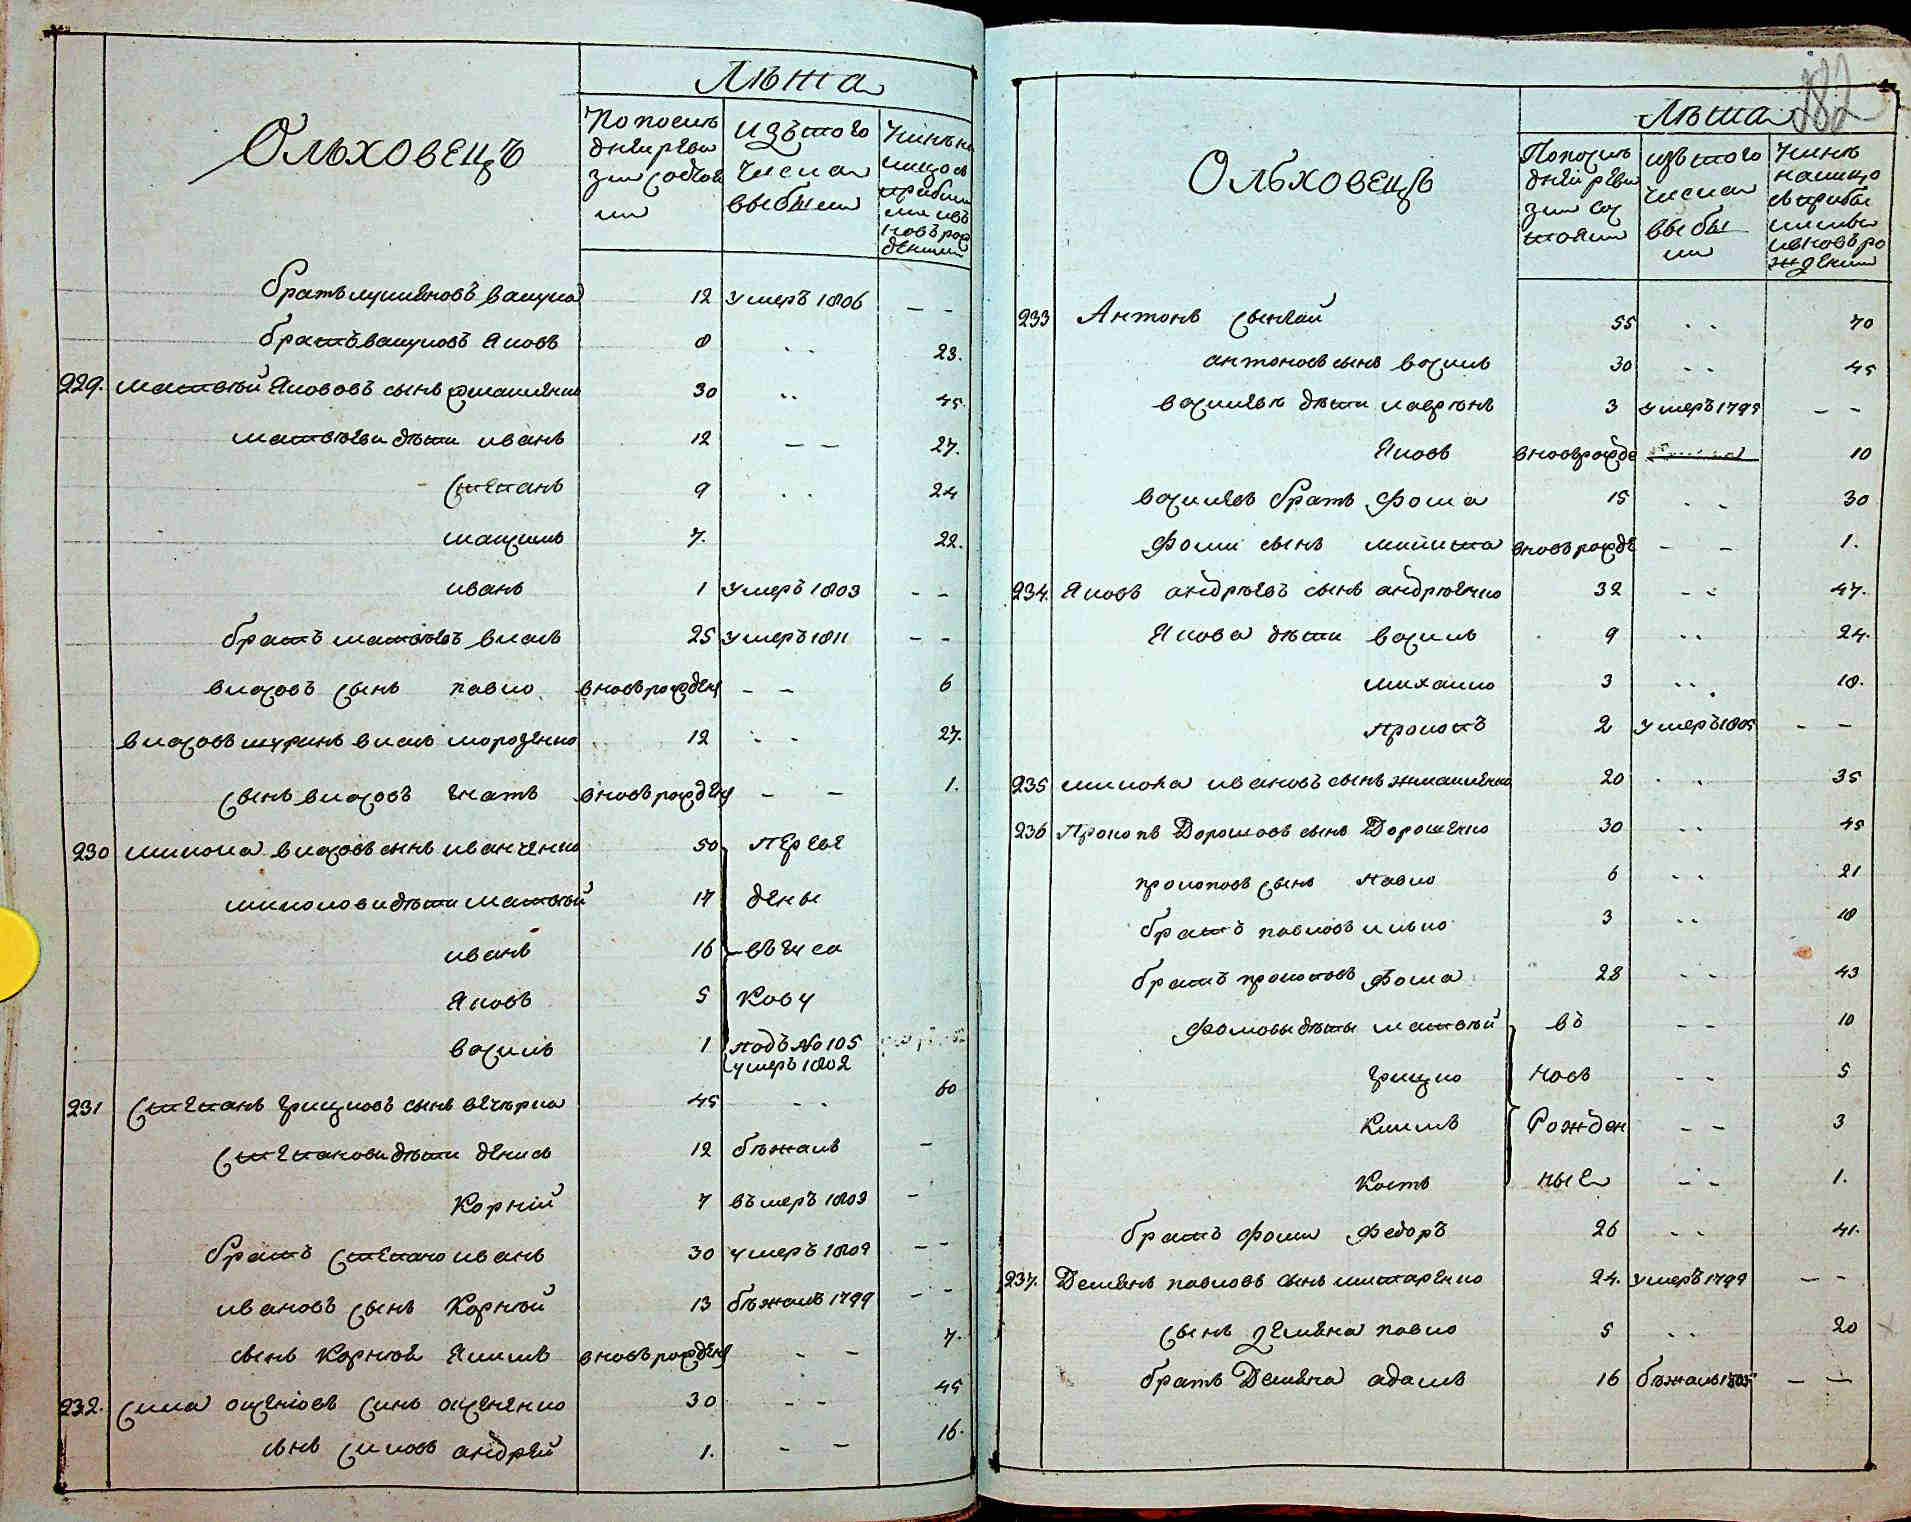 Лѣта
Ольховецъ
По после
дней реви
зіи состоя
ли
изъ того
числа
выбыли
Нинѣ на
лицо съ
прибыли
ми и въ
новъ рож
денными
братъ лукяновъ вакула 12 умеръ 1806 — —
братъ вакуловъ Яковъ 8 . . 23.
229. матвѣй Якововъ сынъ 30 . . 45.
матвѣеви дѣти иванъ 12 — — 27.
Степанъ 9 . . 24
максимъ 7. 22.
иванъ 1 умеръ 1803 — —
братъ матвѣевъ власъ 25 умеръ 1811 — —
власовъ сынъ павло вновьрожден — — 6
власовъ шуринъ власъ морозенко 12 . . 27.
сынъ власовъ игнатъ вновьрожден — — 1.
230 микола власовъ сынъ иванченко 50 Переве
миколови дѣти матвѣй 17 дены
иванъ 16 въ чиса
Яковъ 5 Кову
василь 1 подъ No 105
умеръ 1802
231 Степанъ грицковъ сынъ вечерка 45 . . 60
Степанови дѣти денисъ 12 бѣжалъ —
Корній 7 въмеръ 1803 —
братъ Степана иванъ 30 умеръ 1809 — —
ивановъ сынъ Корнѣй 13 бѣжалъ 1799 — —
сынъ Корнѣя Якимъ вновьрожден — — 7.
232. Сила оксеновъ синъ оксененко 30 — — 45
сынъ силовъ андрей 1. — — 16.
282
Лѣта
Ольховецъ
По после
дней реви
зіи сос
тояли
изъ того
числа
выбы
ли
Нинѣ
налицо
съ прибы
лими
и вновь ро
ждении
233 Антонъ 55 . . 70
антоновъ сынъ василь 30 . . 45
василевы дѣти лаврѣнъ 3 умеръ 1799 — —
Яковъ вновьрожде 10
василевъ братъ Фома 15 . . 30
Фоми сынъ микита вновьрожде — — 1.
234. Яковъ андрѣевъ сынъ андрѣенко 32 — — 47.
Якова дѣти василь 9 . . 24.
михайло 3 . . 18.
прокопъ 2 умеръ 1805 — —
235 микола ивановъ сынъ 20 . . 35
236 Прокопъ Дорошовъ сынъ Дорошенко 30 . . 45
прокоповъ сынъ павло 6 . . 21
братъ павловъ илько 3 . . 18
братъ прокоповъ Фома 28 . . 43
Фомовы дѣты матвѣй въ — — 10
грицко новъ — — 5
Климъ Рожден — — 3
Костъ ные — — 1.
братъ фоми Федоръ 26 . . 41.
237. Демянъ павловъ сынъ 24. умеръ 1799 — —
сынъ демяна павло 5 . . 20
братъ Демяна адамъ 16 бѣжалъ 1805 — —